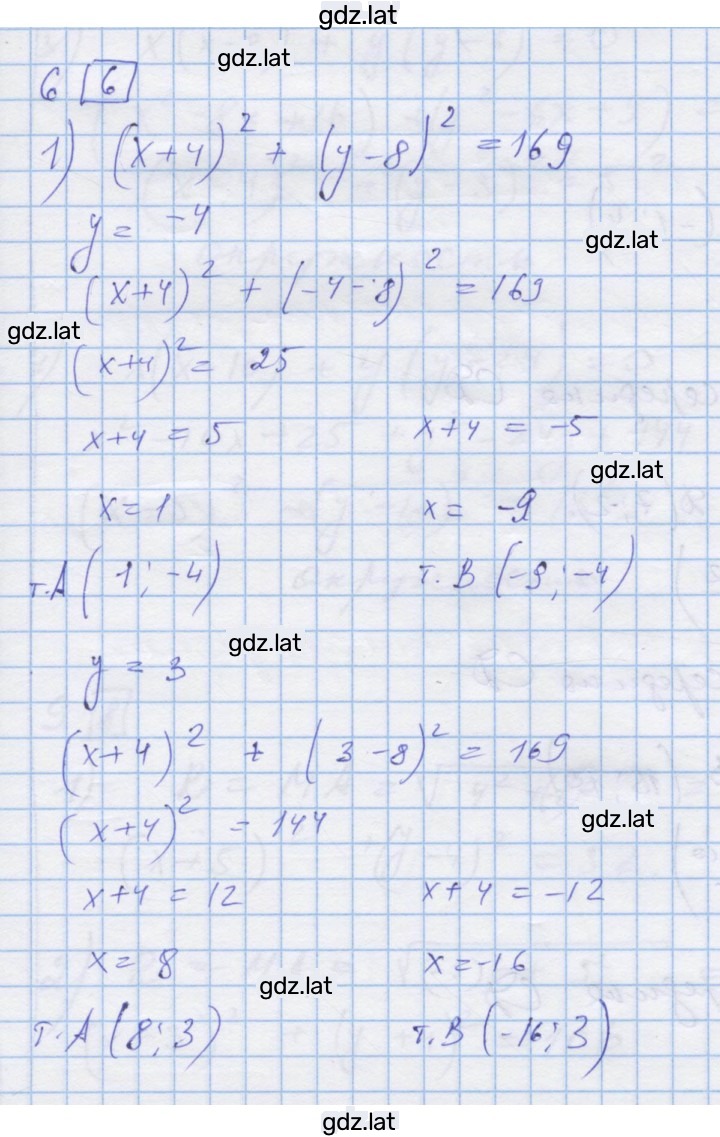 gdz.lat
gdz.lat
6 6
1) (x+4)² + (y-8)² = 169
y = -4
gdz.lat
(x+4)² + (-4-8)² = 169
gdz.lat
(x+4)² = 25
x+4 = 5 x+4 = -5
gdz.lat
x = 1 x = -9
т. A (1; -4) т. B (-9; -4)
gdz.lat
y = 3
(x+4)² + (3-8)² = 169
(x+4)² = 144
gdz.lat
x+4 = 12 x+4 = -12
x = 8 x = -16
gdz.lat
т. A (8; 3) т. B (-16; 3)
gdz.lat